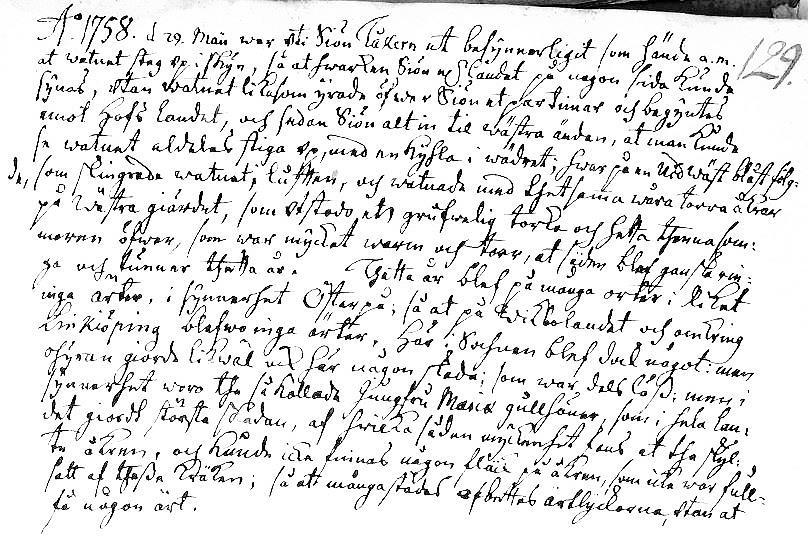 A:o 1758. d 29. Maii war uti Siön Tåkern ett besynnerligit som hände a.m. 129.
at watnet steg up i Skyn, så at hwarken Siön el. Landet på någon sida kunde
synas, utan watnet likasom yrade öfwer Siön et par timar och begyntes
emot Hofs landet, och sedan Siön alt in til wästra änden, at man kunde
se watnet aldeles stiga up, med en kyhla i wädret; hwarpå en Nordwäst blåst fölg:
de, som skingrade watnet i luften, och watnade med thetsama wåra torra åkrar
på Wästra giärdet, som utstodo en grufwelig torka och hetta thenna som:
maren öfwer, som war mycket warm och torr, at säden blef ganska rin:
ga och tunner thetta år. Thetta år blef på många orter i Riket
inga ärter, i synnerhet Österpå; så at på Wikbolandet och omkring
Linkiöping blefwo inga ärter. Här i Sochnen blef dock något: men
ohyran giorde likwäl här någon skada; som war dels löss: men i
synnerhet woro the så kallade Jungfru Mariæ gullhöner, som i hela lan:
det giorde största skadan, af hwilka säden myckenhet fans at the skyl:
te åkren, och kunde icke finnas någon fläck på åkren, som icke war full-
satt af thesse kräken; så att mångastädes afbettes ärtlyckorna, utan at
få någon ärt.